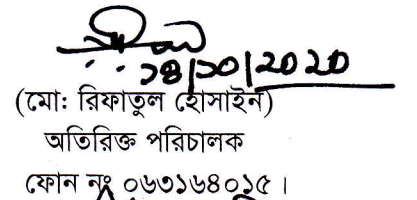 ১৪/১০/২০২০
(মো: রিফাতুল হোসাইন)
অতিরিক্ত পরিচালক
ফোন নং ০৬৩১৬৪০১৫।